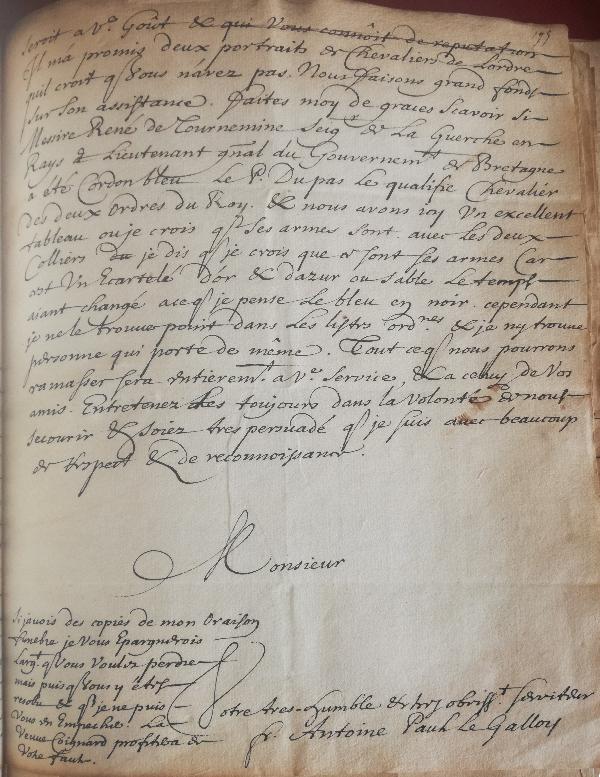 195
seroit a v.e Goût & qui Vous connoît de reputation
Il m'a promis deux portraits de Chevaliers de Lordre
quil croit q Vous n'avez pas. Nous faisons grand fonds
sur Son assistance. Faites moy de graces scavoir si
Messire René de Tournemine seig.r de La Guerche en
Rays & Lieutenant gñal du Gouvernem.t de Bretagne
a été Cordon bleu Le P. Du pas Le qualifie Chevalier
des deux Ordres du Roy. & nous avons icy Un excellent
tableau ou je crois q Ses armes Sont. avec Les deux
Colliers du je dis q je crois que ce sont ses armes Car
c'est Un Ecartelé D'or & dazur ou Sable Le temps
aiant changé a ce q je pense Le bleu en noir. cependant
je ne le trouve point dans Les listes ord.res & je ny trouve
personne qui porte de même. Tout ce q nous pourrons
ramasser sera entierem.t a v.e Services & a celuy de Vos
amis. Entretenez Les toujours dans la Volonté de nous
secourir & Soiez tres persuadé q je suis avec beaucoup
de respect & de reconnoissance.
Monsieur
Si javois des copies de mon Oraison
funebre je Vous Epargnerois
Larg.t q Vous Voulez perdre
mais puisq Vous y étes
resolu & q je ne puis
Vous en Empecher. La
Veuve Coignard profitera de
Votre faute.
Votre tres-humble & tres obeiss.t Serviteur
fr. Antoine Paul Le Gallois